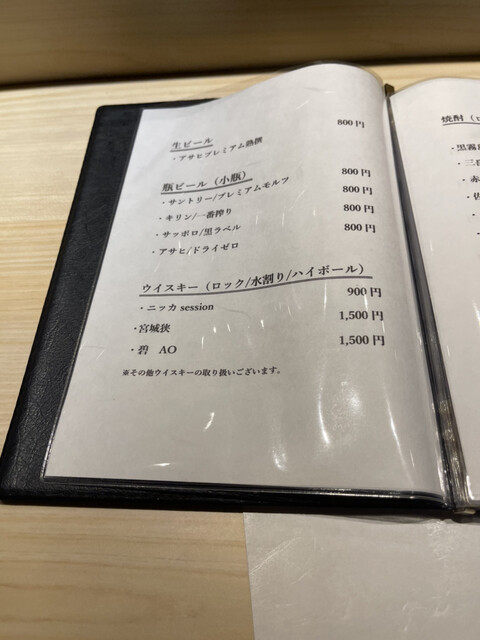 生ビール
・アサヒプレミアム熟撰 800円
瓶ビール（小瓶）
・サントリー/プレミアムモルツ 800円
・キリン/一番搾り 800円
・サッポロ/黒ラベル 800円
・アサヒ/ドライゼロ 800円
ウイスキー（ロック/水割り/ハイボール）
・ニッカ session 900円
・宮城狭 1,500円
・碧 AO 1,500円
※その他ウイスキーの取り扱いございます。
焼酎（ロ
・黒霧
・三
・赤
・佐